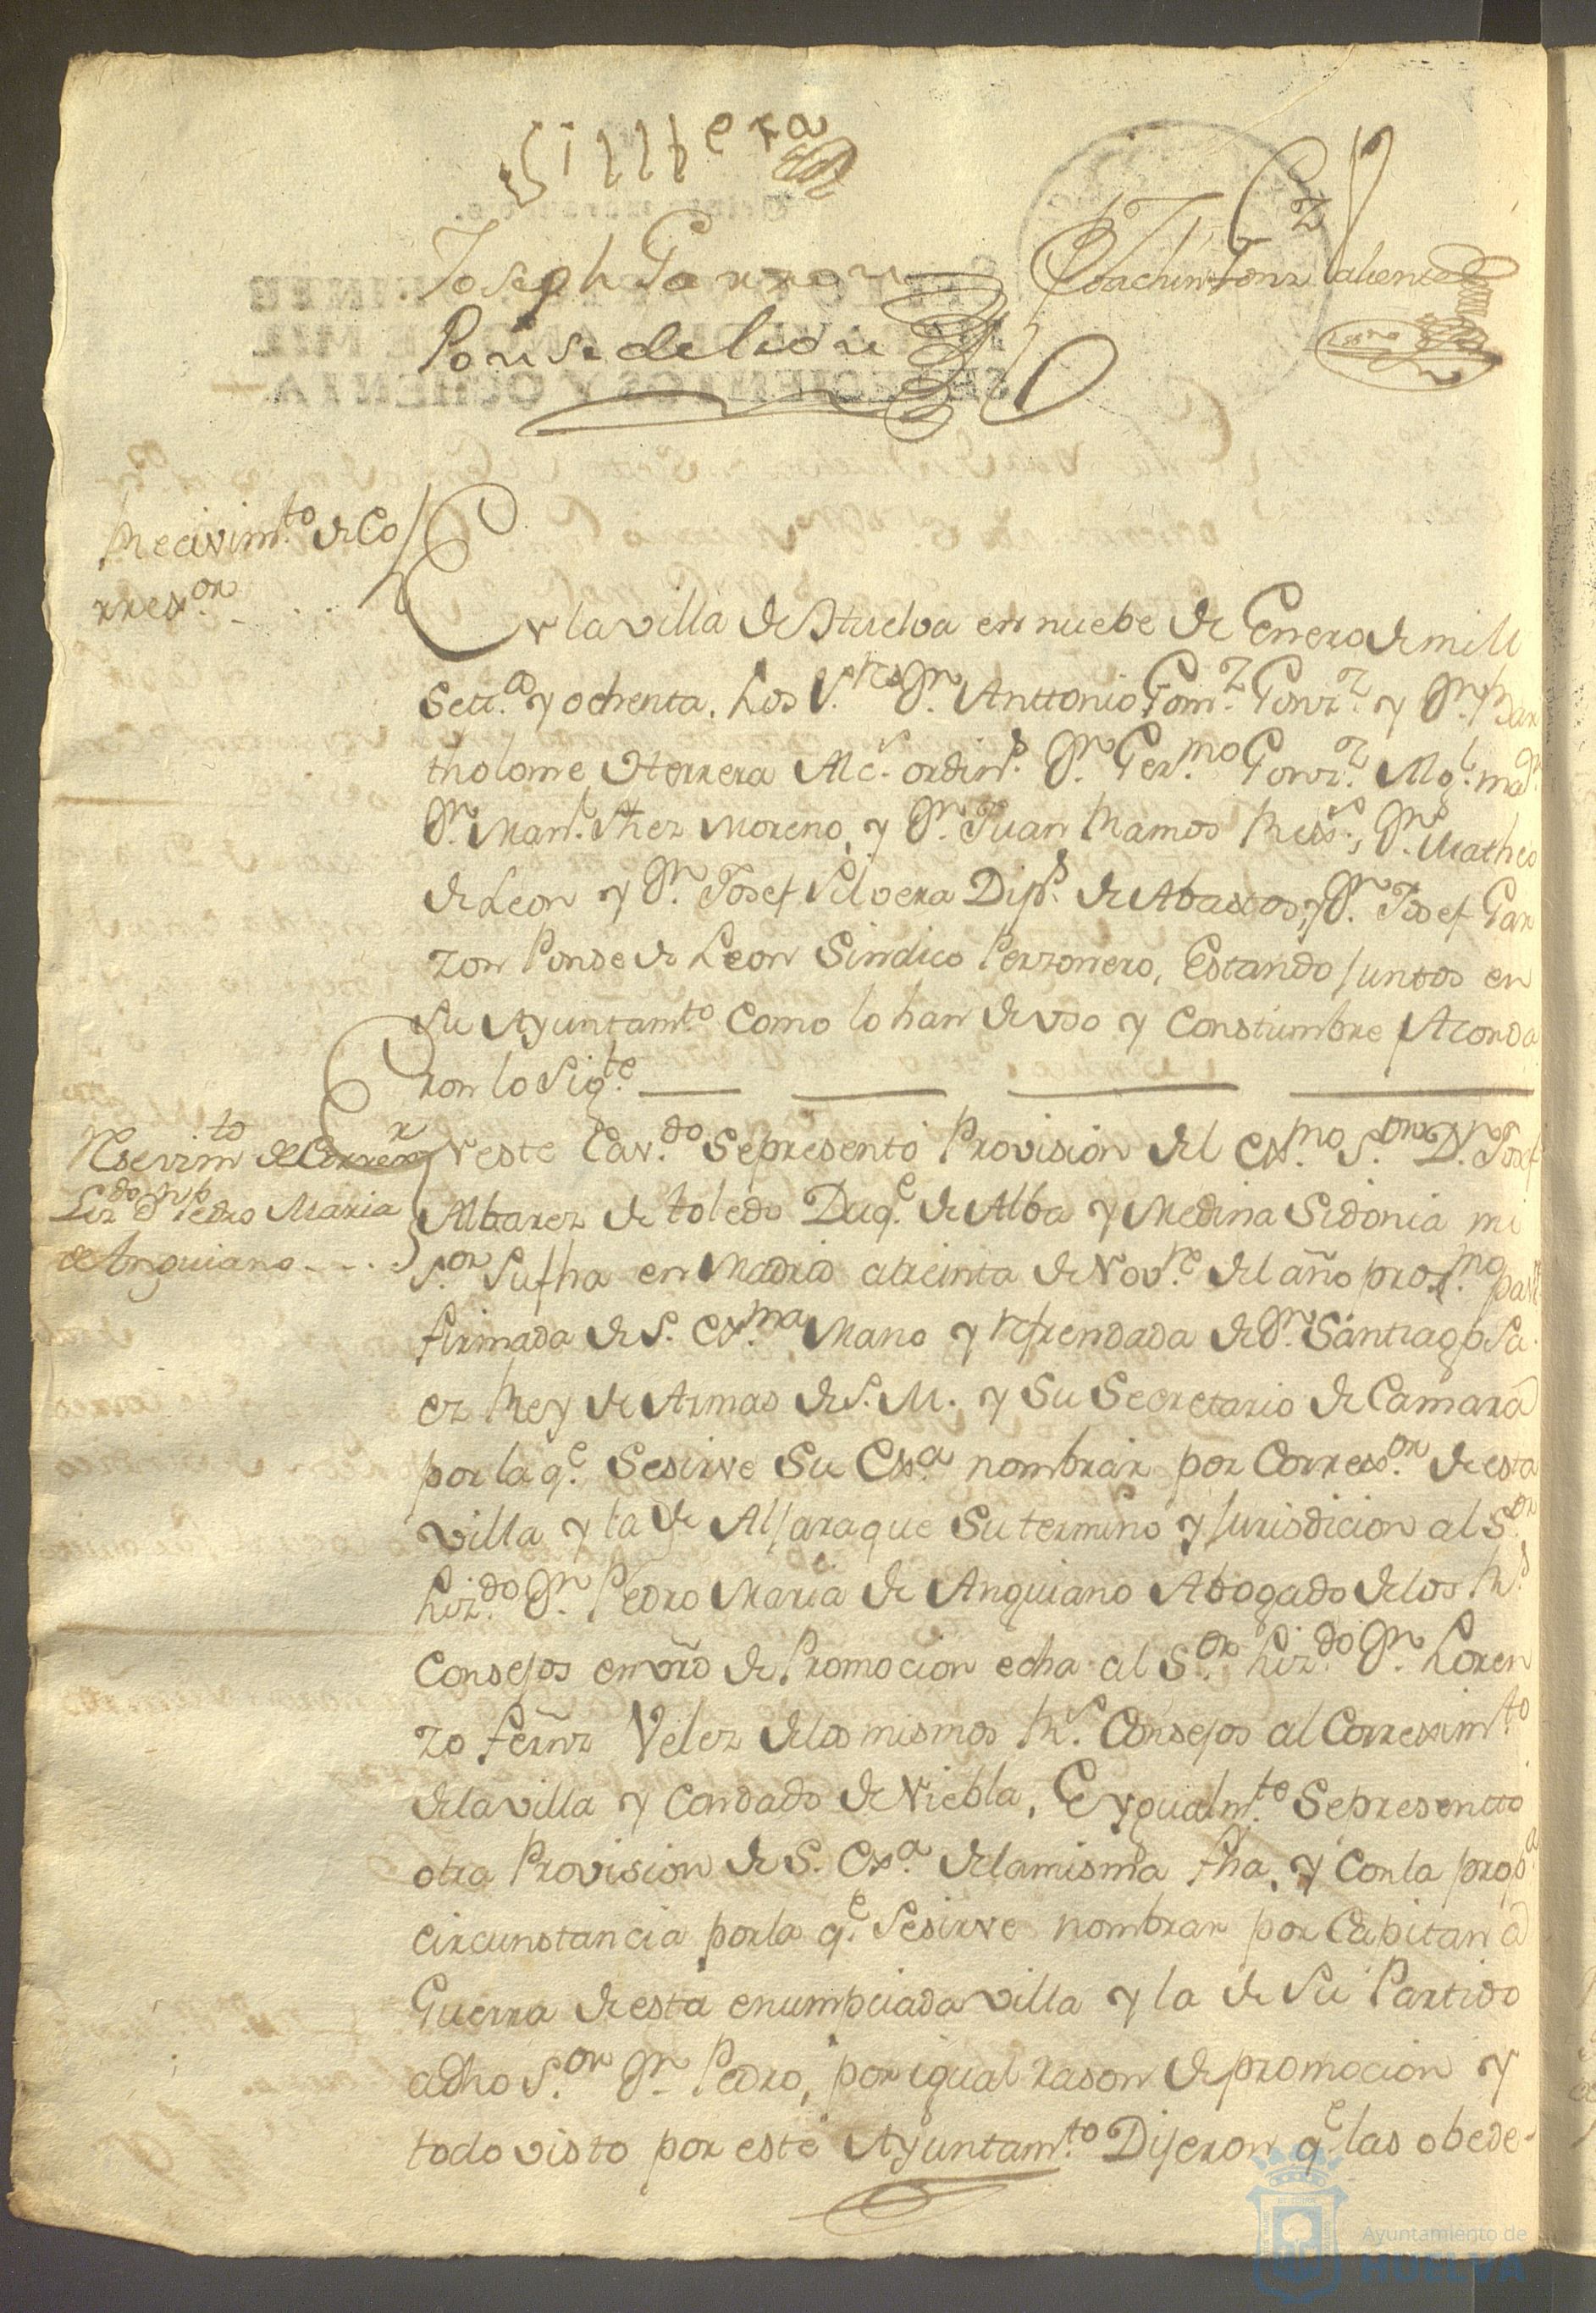 Sillbera
Joseph Garzon
Ponse de leon
Joachin Gonz Valiente
Recivim.to de Co
rrex.or
En la villa de Huelva en nuebe de Enero de mill
Sett.os y ochenta. Los S.res Dn. Anttonio Gom.z Gonz.z y Dn. Bar
tholome Herrera Alc.s ordin.s Dn. Ger.mo Gonz.z Alg.l ma.or
Dn. Man.l Hez Moreno, y Dn. Juan Ramos Rex.s, Dn. Matheo
de Leon y Dn. Josef Silvera Dip.s de Abastos, y Dn. Josef Gar
zon Ponse de Leon Sindico Perzonero, Estando juntos en
su Ayuntam.to como lo han de uso y constumbre Acorda
ron lo sig.te
Resevim.to de Correx.r
Liz.do Dn Pedro Maria
de Anguiano
En este Cav.do se presentó Provision del Ex.mo S.or Dn. Josef
Albarez de toledo Duq.e de Alba y Medina Sidonia mi
S.or Su fha en Madrid a treinta de Nov.re del año prox.mo pas.do
firmada de S. Ex.ma Mano y refrendada de Dn. Santiago Sa
ez Rey de Armas de S. M. y Su Secretario de Camara
por la q.e Se sirve Su Ex.a nombrar por Correx.or de esta
villa y la de Aljaraque Su termino y jurisdicion al S.or
Liz.do Dn. Pedro Maria de Anguiano Abogado de los R.s
Consejos en vrd de Promocion echa al S.or Liz.do Dn. Loren
zo fernz Velez de los mismos R.s Consejos al Correxim.to
de la villa y Condado de Niebla. E ygualm.te Se presentto
otra Provision de S. Ex.a de la misma fha, y con la prop.a
circunstancia por la q.e Se sirve nombrar por Capitan a
Guerra de esta enumpciada villa y la de Su Partido
a dho S.or Dn Pedro, por igual rason de promocion y
todo visto por este Ayuntam.to Dijeron q.e las obede-
Ayuntamiento de
HUELVA